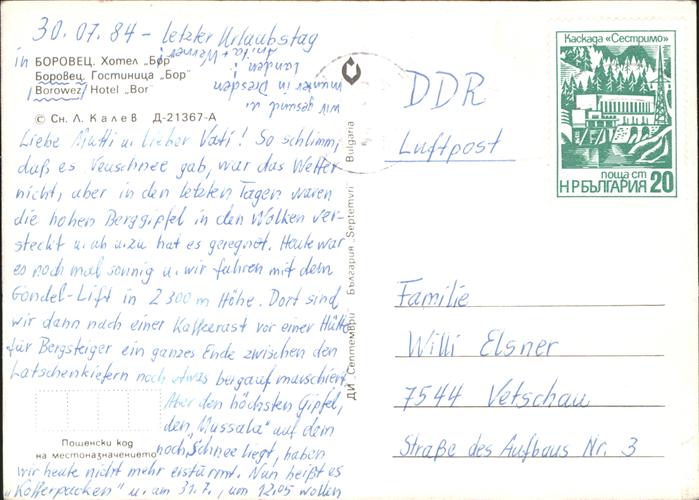 30.07.84 – letzter Urlaubstag
in БОРОВЕЦ. Хотел „Бор"
Боровец. Гостиница „Бор"
/Borowez/ Hotel „Bor"
© Сн. Л. Калев Д-21367-А
Liebe Mutti u. lieber Vati! So schlimm,
daß es Neuschnee gab, war das Wetter
nicht, aber in den letzten Tagen waren
die hohen Berggipfel in den Wolken ver-
steckt u. ab u. zu hat es geregnet. Heute war
es noch mal sonnig u. wir fuhren mit dem
Gondel-Lift in 2300 m Höhe. Dort sind
wir dann nach einer Kaffeerast vor einer Hütte
für Bergsteiger ein ganzes Ende zwischen den
Latschenkiefern noch etwas bergauf marschiert.
Aber den höchsten Gipfel,
den „Mussala" auf dem
noch Schnee liegt, haben
wir heute nicht mehr erstürmt. Nun heißt es
„Kofferpacken" u. am 31.7., um 12.05 wollen
wir gesund u.
munter in Dresden
landen!
Anita + Werner
Пощенски код
на местоназначението
ДИ „Септември" България „Septemvri" Bulgaria
DDR
Luftpost
Каскада «Сестримо»
поща ст
НР БЪЛГАРИЯ 20
Familie
Willi Elsner
7544 Vetschau
Straße des Aufbaus Nr. 3